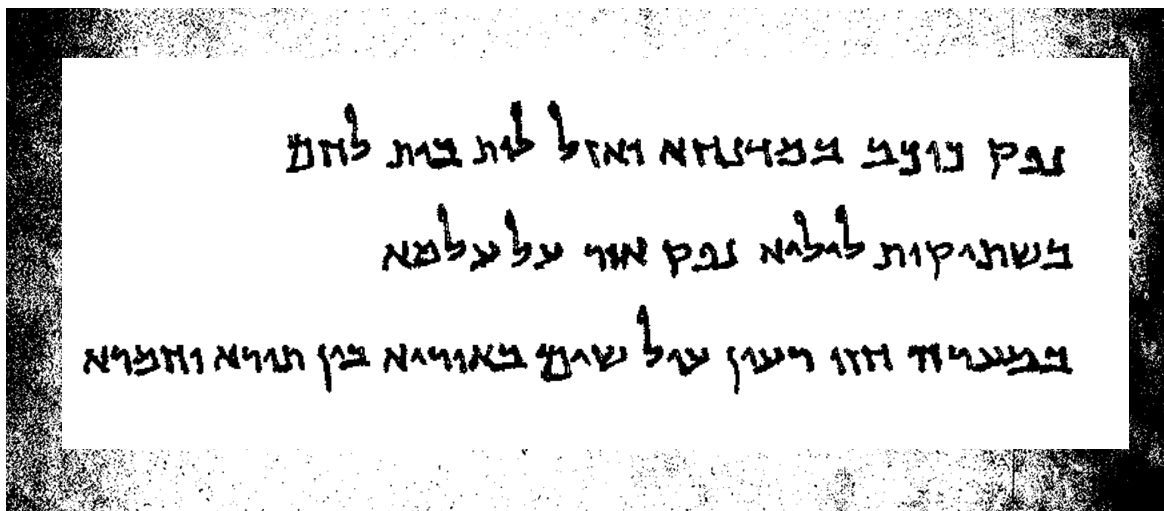 נפק כוכב במדנחא ואזל לות בית לחם
בשתיקות ליליא נפק אור על עלמא
במערה חזו רעין עול שים באוריא בין תורא וחמרא